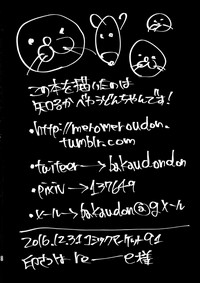 この本を描いたのは
知るかバカうどんちゃんです!
・http://meromeroudon.
tumblr.com
・twitter→bakaudondon
・pixiv→137649
・メール→bakaudon@gメール
2016.12.31 コミックマーケット91
印刷は 様